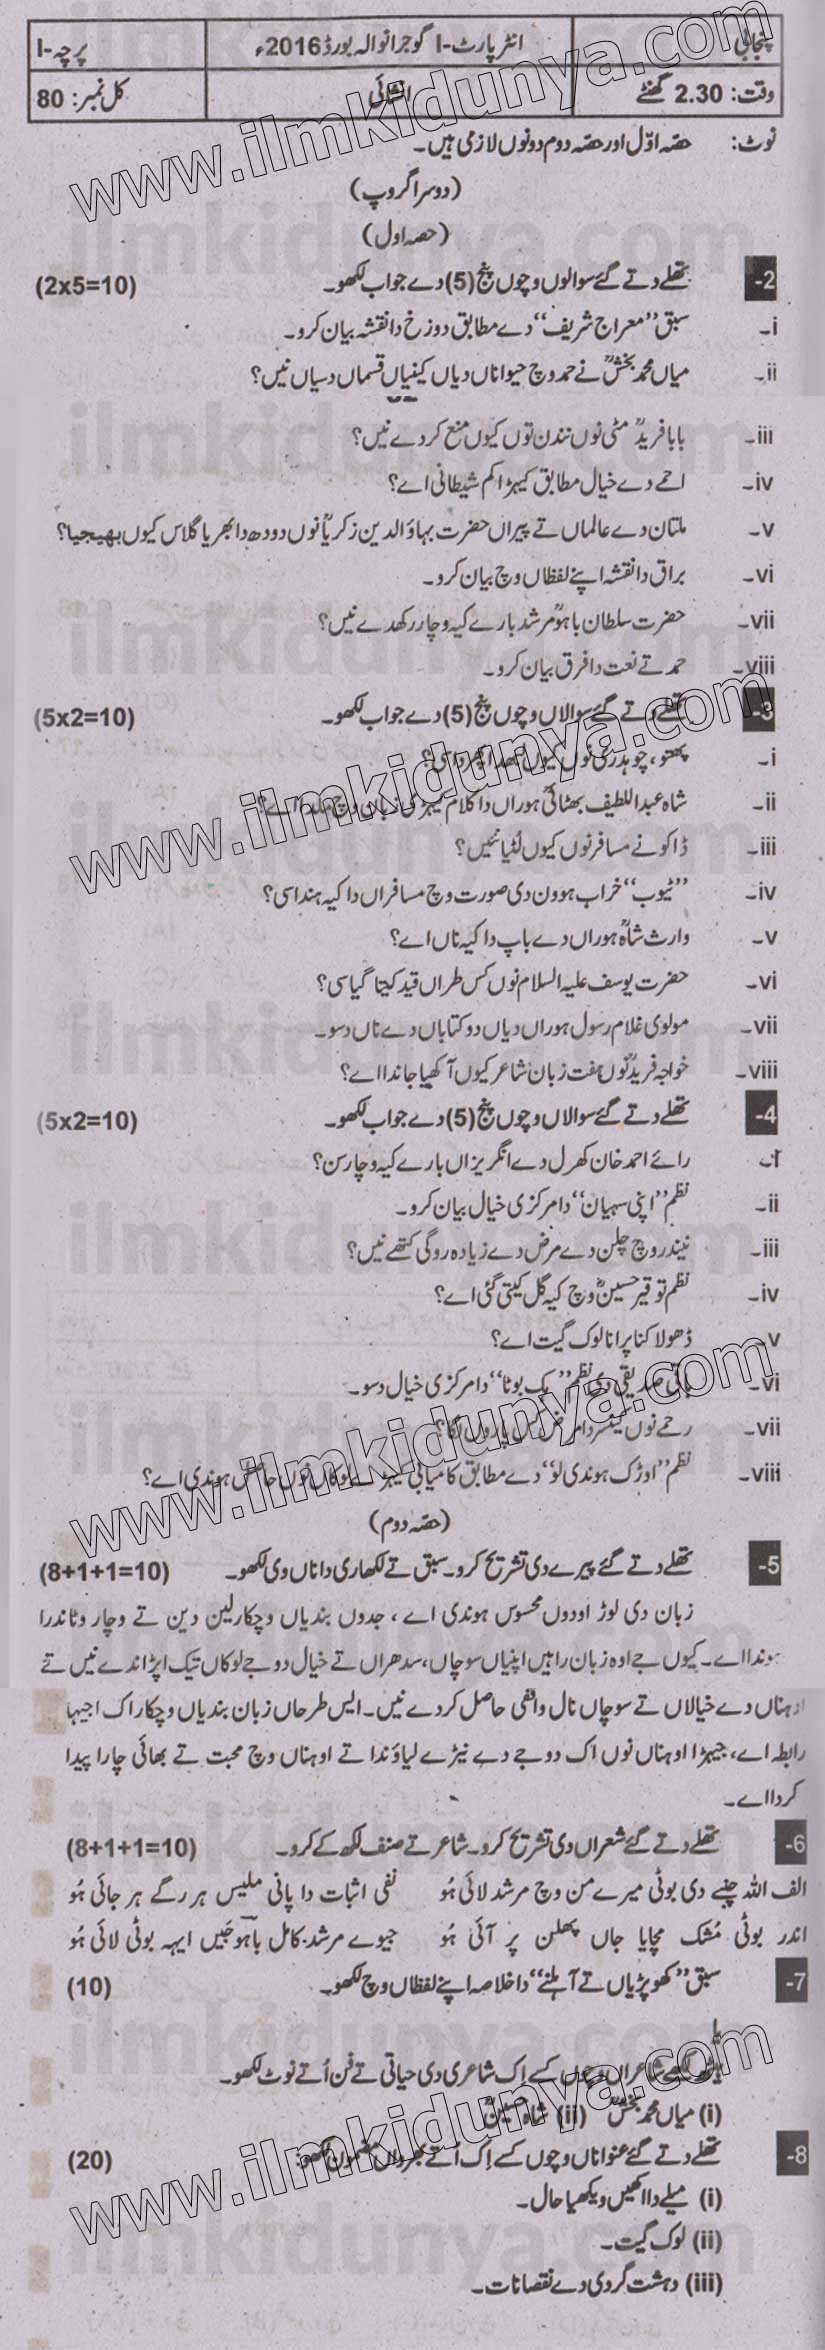 پنجابی انٹر پارٹ-I گوجرانوالہ بورڈ 2016ء پرچہ-I
وقت: 2.30 گھنٹے انشائی کل نمبر: 80
نوٹ: حصّہ اوّل اور حصّہ دوم دونوں لازمی ہیں۔
(دوسرا گروپ)
(حصہ اول)
2- تھلے دتے گئے سوالوں وچوں پنج (5) دے جواب لکھو۔ (2x5=10)
i۔ سبق ”معراج شریف“ دے مطابق دوزخ دا نقشہ بیان کرو۔
ii۔ میاں محمد بخشؒ نے حمد وچ حیواناں دیاں کینیاں قسماں دسیاں نیں؟
iii۔ بابا فریدؒ مٹی نوں نندن توں کیوں منع کردے نیں؟
iv۔ احمے دے خیال مطابق کیہڑا کم شیطانی اے؟
v۔ ملتان دے عالماں تے پیراں حضرت بہاؤالدین زکریاؒ نوں دودھ دا بھریا گلاس کیوں بھیجیا؟
vi۔ براق دا نقشہ اپنے لفظاں وچ بیان کرو۔
vii۔ حضرت سلطان باہوؒ مرشد بارے کیہ وچار رکھدے نیں؟
viii۔ حمد تے نعت دا فرق بیان کرو۔
3- تھلے دتے گئے سوالاں وچوں پنج (5) دے جواب لکھو۔ (5x2=10)
i۔ پھتو، چوہدری نوں کیوں
ii۔ شاہ عبداللطیف بھٹائیؒ ہوراں دا کلام کیہڑی زبان وچ ملدا اے؟
iii۔ ڈاکو نے مسافر نوں کیوں لُٹیا نئیں؟
iv۔ ”ٹیوب“ خراب ہوون دی صورت وچ مسافراں دا کیہ ہندا سی؟
v۔ وارث شاہؒ ہوراں دے باپ دا کیہ ناں اے؟
vi۔ حضرت یوسف علیہ السلام نوں کس طراں قید کیتا گیا سی؟
vii۔ مولوی غلام رسول ہوراں دیاں دو کتاباں دے ناں دسو۔
viii۔ خواجہ فریدؒ نوں ہفت زبان شاعر کیوں آکھیا جاندا اے؟
4- تھلے دتے گئے سوالاں وچوں پنج (5) دے جواب لکھو۔ (5x2=10)
i۔ رائے احمد خان کھرل دے انگریزاں بارے کیہ وچار سن؟
ii۔ نظم ”اپنی سہیان“ دا مرکزی خیال بیان کرو۔
iii۔ نیندر وچ چلن دے مرض دے زیادہ روگی کتھے نیں؟
iv۔ نظم توقیر حسینؓ وچ کیہ گل کیتی گئی اے؟
v۔ ڈھولا کنا پرانا لوک گیت اے؟
vi۔ باقی صدیقی دی نظم ”یک بوٹا“ دا مرکزی خیال دسو۔
vii۔ رحمے نوں کینسر دا مرض کس پاروں لگا؟
viii۔ نظم ”اوڑک ہوندی لو“ دے مطابق کامیابی کیہڑے لوکاں نوں حاصل ہوندی اے؟
(حصّہ دوم)
5- تھلے دتے گئے پیرے دی تشریح کرو۔ سبق تے لکھاری دا ناں وی لکھو۔ (8+1+1=10)
زبان دی لوڑ اودوں محسوس ہوندی اے، جدوں بندیاں وچکار لین دین تے وچار وٹاندرا
ہوندا اے۔ کیوں جے اوہ زبان راہیں اپنیاں سوچاں، سدھراں تے خیال دوجے لوکاں تیک اپڑاندے نیں تے
اوہناں دے خیالاں تے سوچاں نال واقفی حاصل کردے نیں۔ ایس طرحاں زبان بندیاں وچکار اک اجیہا
رابطہ اے، جیہڑا اوہناں نوں اک دوجے دے نیڑے لیاؤندا تے اوہناں وچ محبت تے بھائی چارا پیدا
کردا اے۔
6- تھلے دتے گئے شعراں دی تشریح کرو۔ شاعر تے صنف لکھ کے کرو۔ (8+1+1=10)
الف اللہ چنبے دی بوٹی میرے من وچ مرشد لائی ہُو نفی اثبات دا پانی ملیس ہر رگے ہر جائی ہُو
اندر بوٹی مُشک مچایا جاں پھلن پر آئی ہُو جیوے مرشد کامل باہُو جَیں ایہہ بوٹی لائی ہُو
7- سبق ”کھوپڑیاں تے آہلنے“ دا خلاصہ اپنے لفظاں وچ لکھو۔ (10)
یا
شاعراں وچوں کسے اِک شاعر دی حیاتی تے فن اُتے نوٹ لکھو۔
(i) میاں محمد بخشؒ (ii) شاہ حسینؒ
8- تھلے دتے گئے عنواناں وچوں کسے اِک اُتے بھرواں مضمون لکھو: (20)
(i) میلے دا اکھیں ویکھیا حال۔
(ii) لوک گیت۔
(iii) دہشت گردی دے نقصانات۔
www.ilmkidunya.com
www.ilmkidunya.com
www.ilmkidunya.com
www.ilmkidunya.com